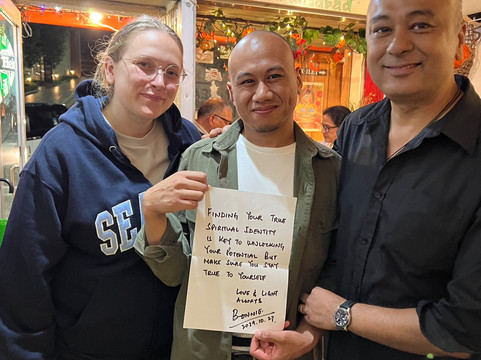 FINDING YOUR TRUE
SPIRITUAL IDENTITY
IS KEY TO UNLOCKING
YOUR POTENTIAL BUT
MAKE SURE YOU STAY
TRUE TO YOURSELF
LOVE & LIGHT
ALWAYS
BONNIE.
2024.10.27
SE